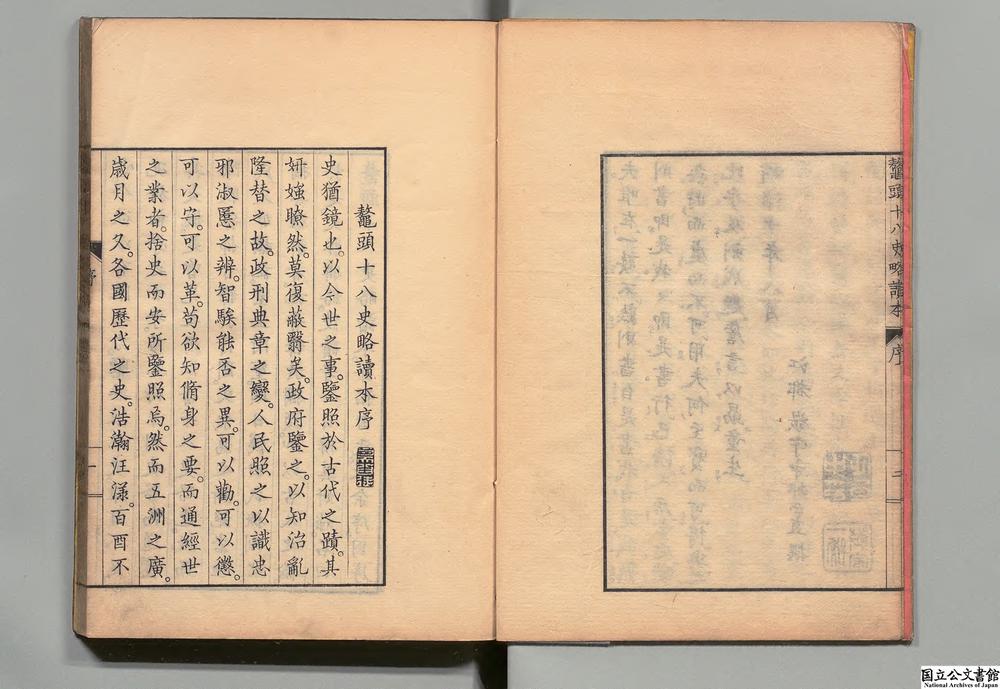 鼇頭十八史略讀本
序
二
鼇頭十八史略讀本序
史猶鏡也。以今世之事。鑒照於古代之蹟。其
妍媸瞭然。莫復蔽翳矣。政府鑒之。以知治亂
隆替之故。政刑典章之變。人民照之以識忠
邪淑慝之辨。智騃能否之異。可以勸。可以懲。
可以守。可以革。苟欲知脩身之要。而通經世
之業者。捨史而安所鑒照焉。然而五洲之廣。
歲月之久。各國歷代之史。浩瀚汪漾。百酉不
序
一
国立公文書館
National Archives of Japan